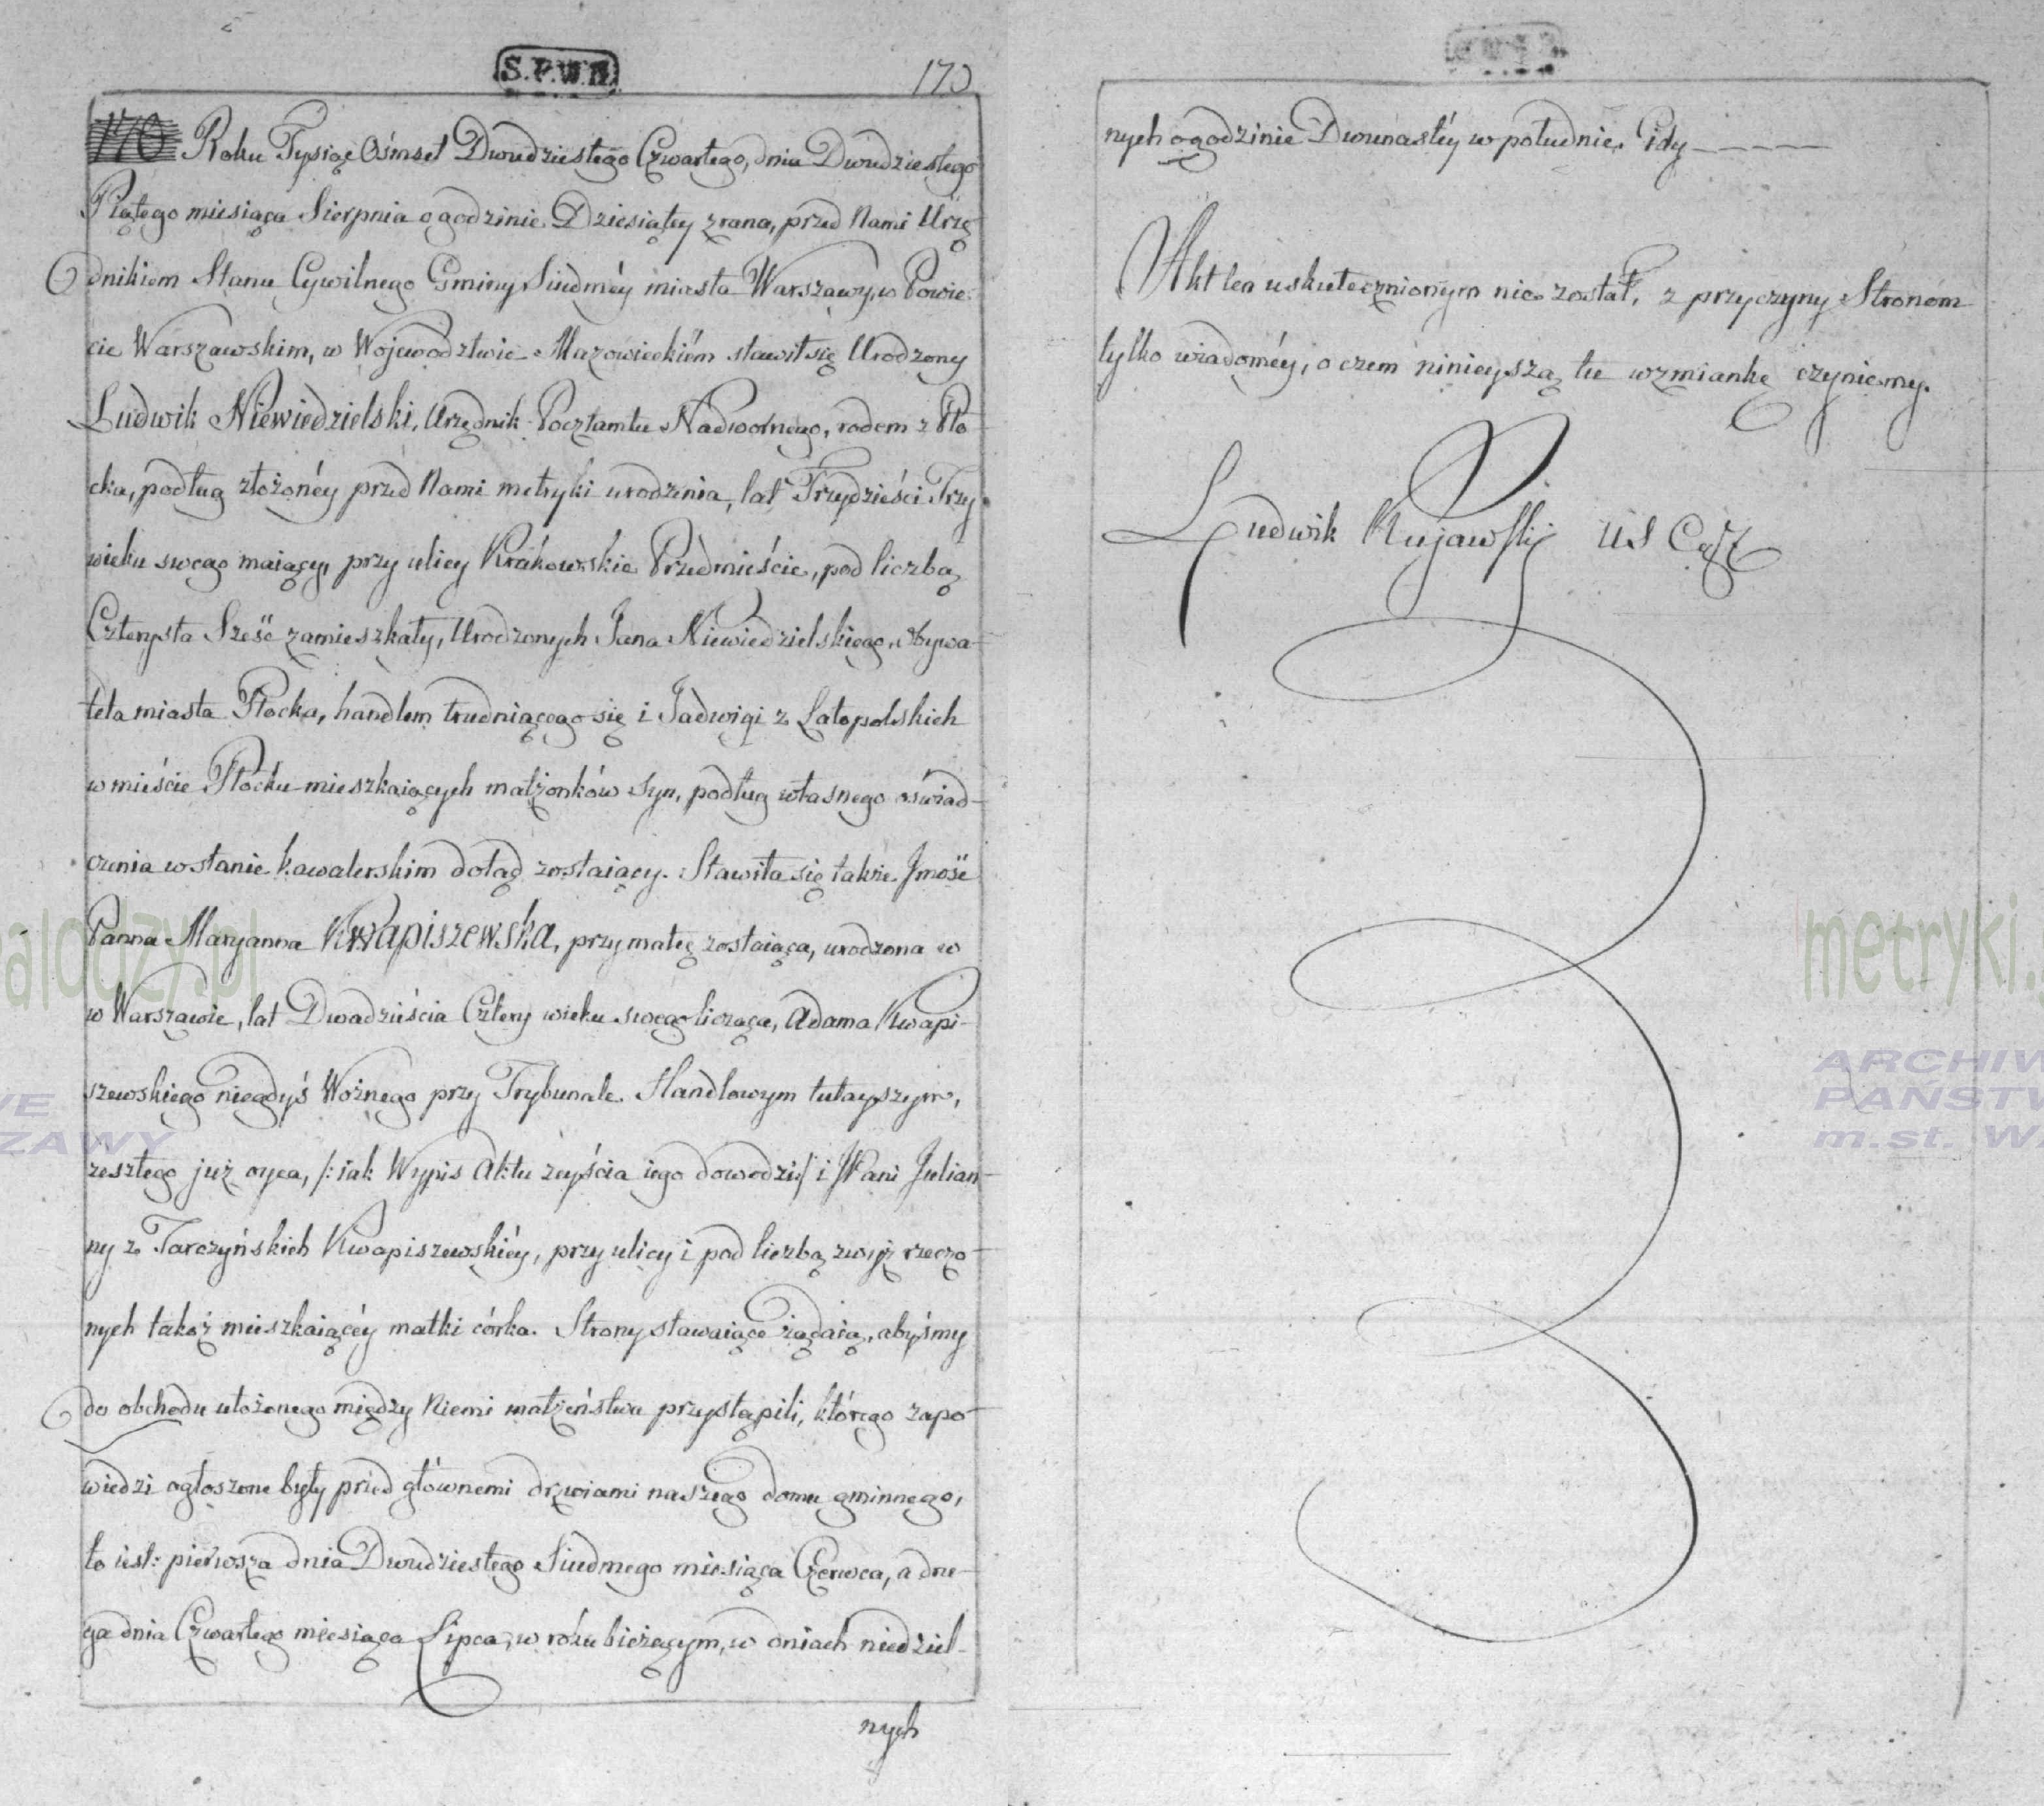 S.P.W.M
170
170 Roku Tysiąc Ośmset Dwudziestego Czwartego, dnia Dwudziestego
Piątego miesiąca Sierpnia o godzinie Dziesiątey zrana, przed Nami Urzę-
dnikiem Stanu Cywilnego Gminy Siudméy miasta Warszawy, w Powie-
cie Warszawskim, w Wojewodztwie Mazowieckiém stawił się Urodzony
Ludwik Niewiedzielski, Urzędnik Pocztamtu Nadwornego, rodem z Pło-
cka, podług złożonéy przed Nami metryki urodzenia, lat Trzydzieści Trzy
wieku swego maiący, przy ulicy Krakowskie Przedmieście, pod liczbą
Czterysta Sześć zamieszkały, Urodzonych Jana Niewiedzielskiego, Obywa-
tela miasta Płocka, handlem trudniącego się i Jadwigi z Latopolskich
w mieście Płocku mieszkaiących małżonków Syn, podług własnego oświad-
czenia w stanie kawalerskim dotąd zostaiący. Stawiła się także Jmość
Panna Maryanna Kwapiszewska, przy matce zostaiąca, urodzona w
w Warszawie, lat Dwadzieścia Cztery wieku swego licząca, Adama Kwapi-
szewskiego niegdyś Woźnego przy Trybunale Handlowym tutayszym,
zeszłego już oyca, /: iak Wypis Aktu zeyścia iego dowodzi :/ i JPani Julian-
ny z Tarczyńskich Kwapiszewskiéy, przy ulicy i pod liczbą zwyż rzeczo-
nych takoż mieszkaiącéy matki córka. Strony stawaiące żądaią, abyśmy
do obchodu ułożonego między Niemi małżeństwa przystąpili, którego zapo-
wiedzi ogłoszone były przed głównemi drzwiami naszego domu gminnego,
to iest: pierwsza dnia Dwudziestego Siudmego miesiąca Czerwca, a dru-
ga dnia Czwartego miesiąca Lipca, w roku bieżącym, w dniach niedziel-
nych
nych o godzinie Dwunastéy w południe. Gdy
Akt ten uskutecznionym nie został, z przyczyny Stronom
tylko wiadoméy, o czem ninieyszą tu wzmiankę czyniemy.
Ludwik Kujawski
metryki.
ARCHIW
PAŃSTW
m.st. W